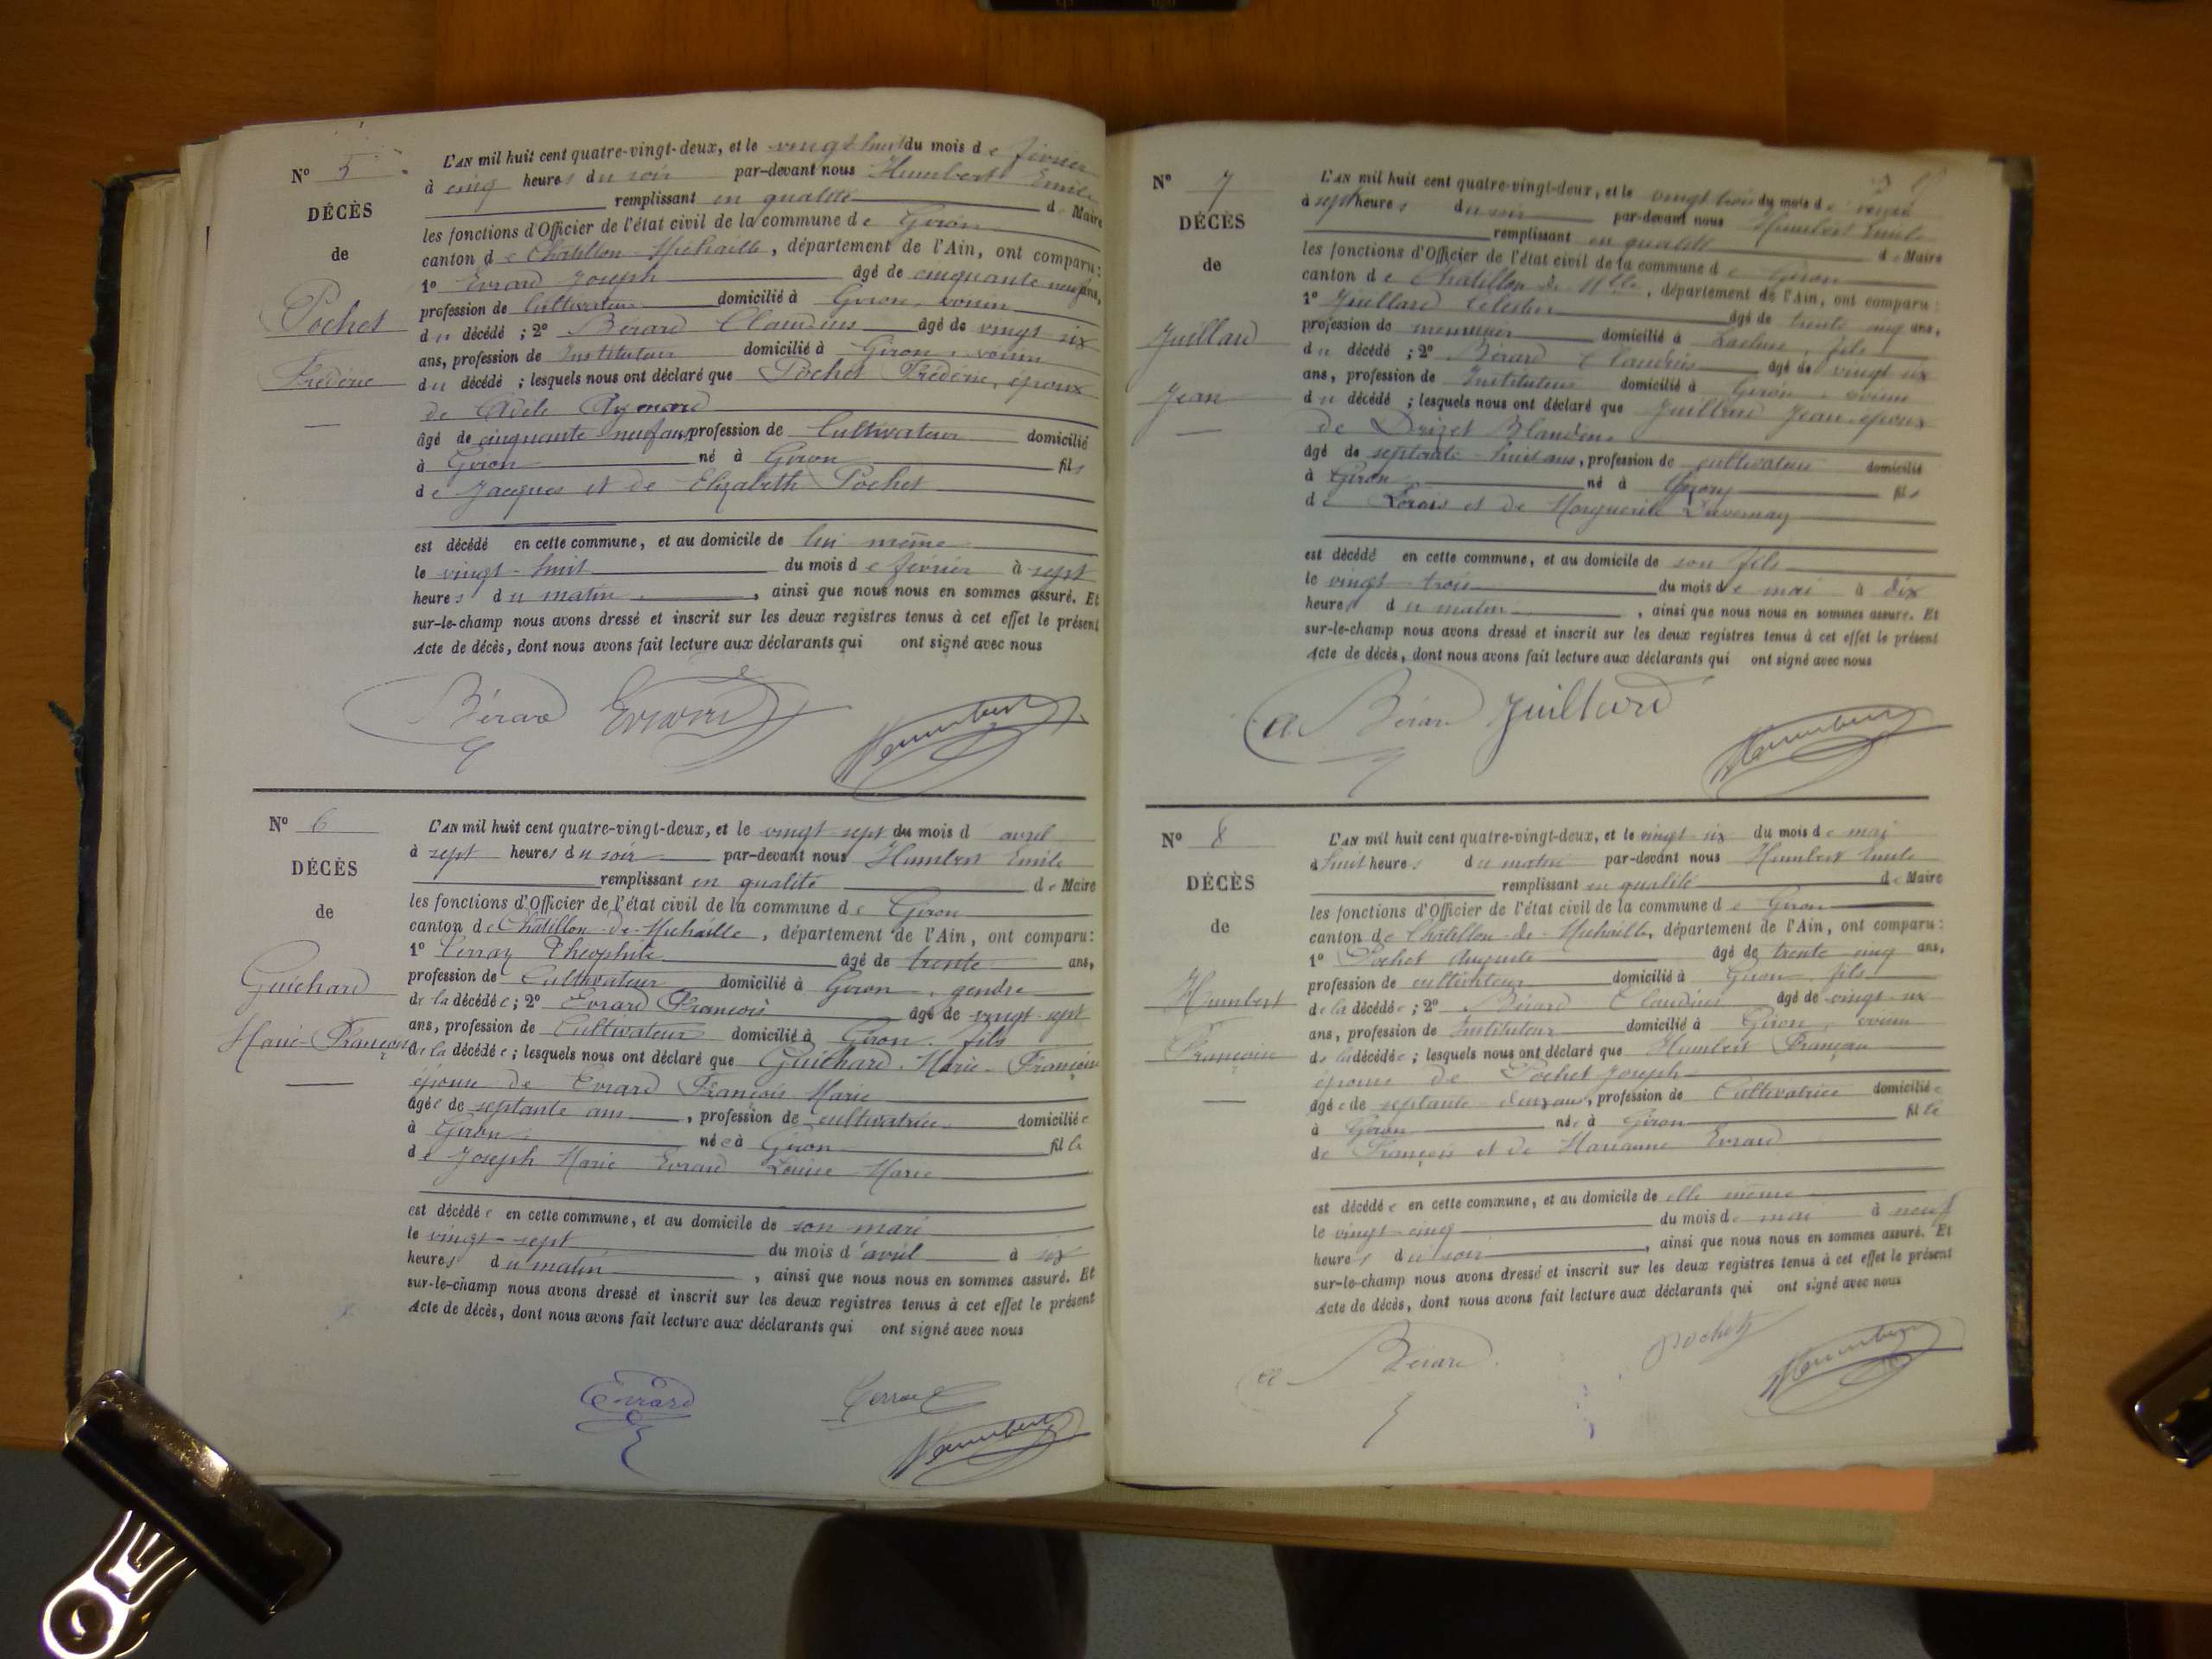 N° 5
DÉCÈS
de
Pochet
Frédéric
L'AN mil huit cent quatre-vingt-deux, et le vingt huit du mois de février
à cinq heures du soir par-devant nous Humbert Emile
remplissant en qualité de Maire
les fonctions d'Officier de l'état civil de la commune de Giron
canton de Châtillon-Michaille, département de l'Ain, ont comparu:
1° Evrard Joseph âgé de cinquante neuf ans,
profession de Cultivateur domicilié à Giron, voisin
du décédé ; 2° Bérard Claudius âgé de vingt six
ans, profession de Instituteur domicilié à Giron, voisin
du décédé ; lesquels nous ont déclaré que Pochet Frédéric, époux
de Adèle
âgé de cinquante neuf ans, profession de Cultivateur domicilié
à Giron né à Giron fils
de Jacques et de Elizabeth Pochet
est décédé en cette commune, et au domicile de lui même
le vingt-huit du mois de février à sept
heures du matin, ainsi que nous nous en sommes assuré. Et
sur-le-champ nous avons dressé et inscrit sur les deux registres tenus à cet effet le présent
Acte de décès, dont nous avons fait lecture aux déclarants qui ont signé avec nous
Bérard Evrard Humbert
N° 6
DÉCÈS
de
Guichard
Marie-Françoise
L'AN mil huit cent quatre-vingt-deux, et le vingt-sept du mois d avril
à sept heures du soir par-devant nous Humbert Emile
remplissant en qualité de Maire
les fonctions d'Officier de l'état civil de la commune de Giron
canton de Châtillon-de-Michaille, département de l'Ain, ont comparu:
1° Théophile âgé de trente ans,
profession de Cultivateur domicilié à Giron, gendre
de la décédée ; 2° Evrard François âgé de vingt-sept
ans, profession de Cultivateur domicilié à Giron, fils
de la décédée ; lesquels nous ont déclaré que Guichard Marie-Françoise
épouse de Evrard François Marie
âgée de septante ans, profession de cultivatrice domiciliée
à Giron née à Giron fille
de Joseph Marie Evrard Louise Marie
est décédée en cette commune, et au domicile de son mari
le vingt-sept du mois d'avril à six
heures du matin, ainsi que nous nous en sommes assuré. Et
sur-le-champ nous avons dressé et inscrit sur les deux registres tenus à cet effet le présent
Acte de décès, dont nous avons fait lecture aux déclarants qui ont signé avec nous
Evrard
Humbert
N° 7
DÉCÈS
de
Juillard
Jean
L'AN mil huit cent quatre-vingt-deux, et le vingt trois du mois de
à sept heures du soir par-devant nous Humbert Emile
remplissant en qualité de Maire
les fonctions d'Officier de l'état civil de la commune de Giron
canton de Châtillon de Mlle, département de l'Ain, ont comparu:
1° Juillard Célestin âgé de trente cinq ans,
profession de menuisier domicilié à fils
du décédé ; 2° Bérard Claudius âgé de vingt six
ans, profession de Instituteur domicilié à Giron, voisin
du décédé ; lesquels nous ont déclaré que Juillard Jean époux
de Drizet
âgé de septante-huit ans, profession de cultivateur domicilié
à Giron né à Giron fils
de et de Marguerite
est décédé en cette commune, et au domicile de son fils
le vingt-trois du mois de mai à dix
heures du matin, ainsi que nous nous en sommes assuré. Et
sur-le-champ nous avons dressé et inscrit sur les deux registres tenus à cet effet le présent
Acte de décès, dont nous avons fait lecture aux déclarants qui ont signé avec nous
Bérard Juillard
Humbert
N° 8
DÉCÈS
de
Humbert
Françoise
L'AN mil huit cent quatre-vingt-deux, et le vingt-six du mois de mai
à huit heures du matin par-devant nous Humbert Emile
remplissant en qualité de Maire
les fonctions d'Officier de l'état civil de la commune de Giron
canton de Châtillon-de-Michaille, département de l'Ain, ont comparu:
1° Pochet Auguste âgé de trente cinq ans,
profession de cultivateur domicilié à Giron, fils
de la décédée ; 2° Bérard Claudius âgé de vingt-six
ans, profession de Instituteur domicilié à Giron, voisin
de la décédée ; lesquels nous ont déclaré que Humbert Françoise
épouse de Pochet Joseph
âgée de septante ans, profession de Cultivatrice domiciliée
à Giron née à Giron fille
de François et de Marianne Evrard
est décédée en cette commune, et au domicile de elle même
le vingt-cinq du mois de mai à neuf
heures du soir, ainsi que nous nous en sommes assuré. Et
sur-le-champ nous avons dressé et inscrit sur les deux registres tenus à cet effet le présent
Acte de décès, dont nous avons fait lecture aux déclarants qui ont signé avec nous
Bérard Pochet Humbert